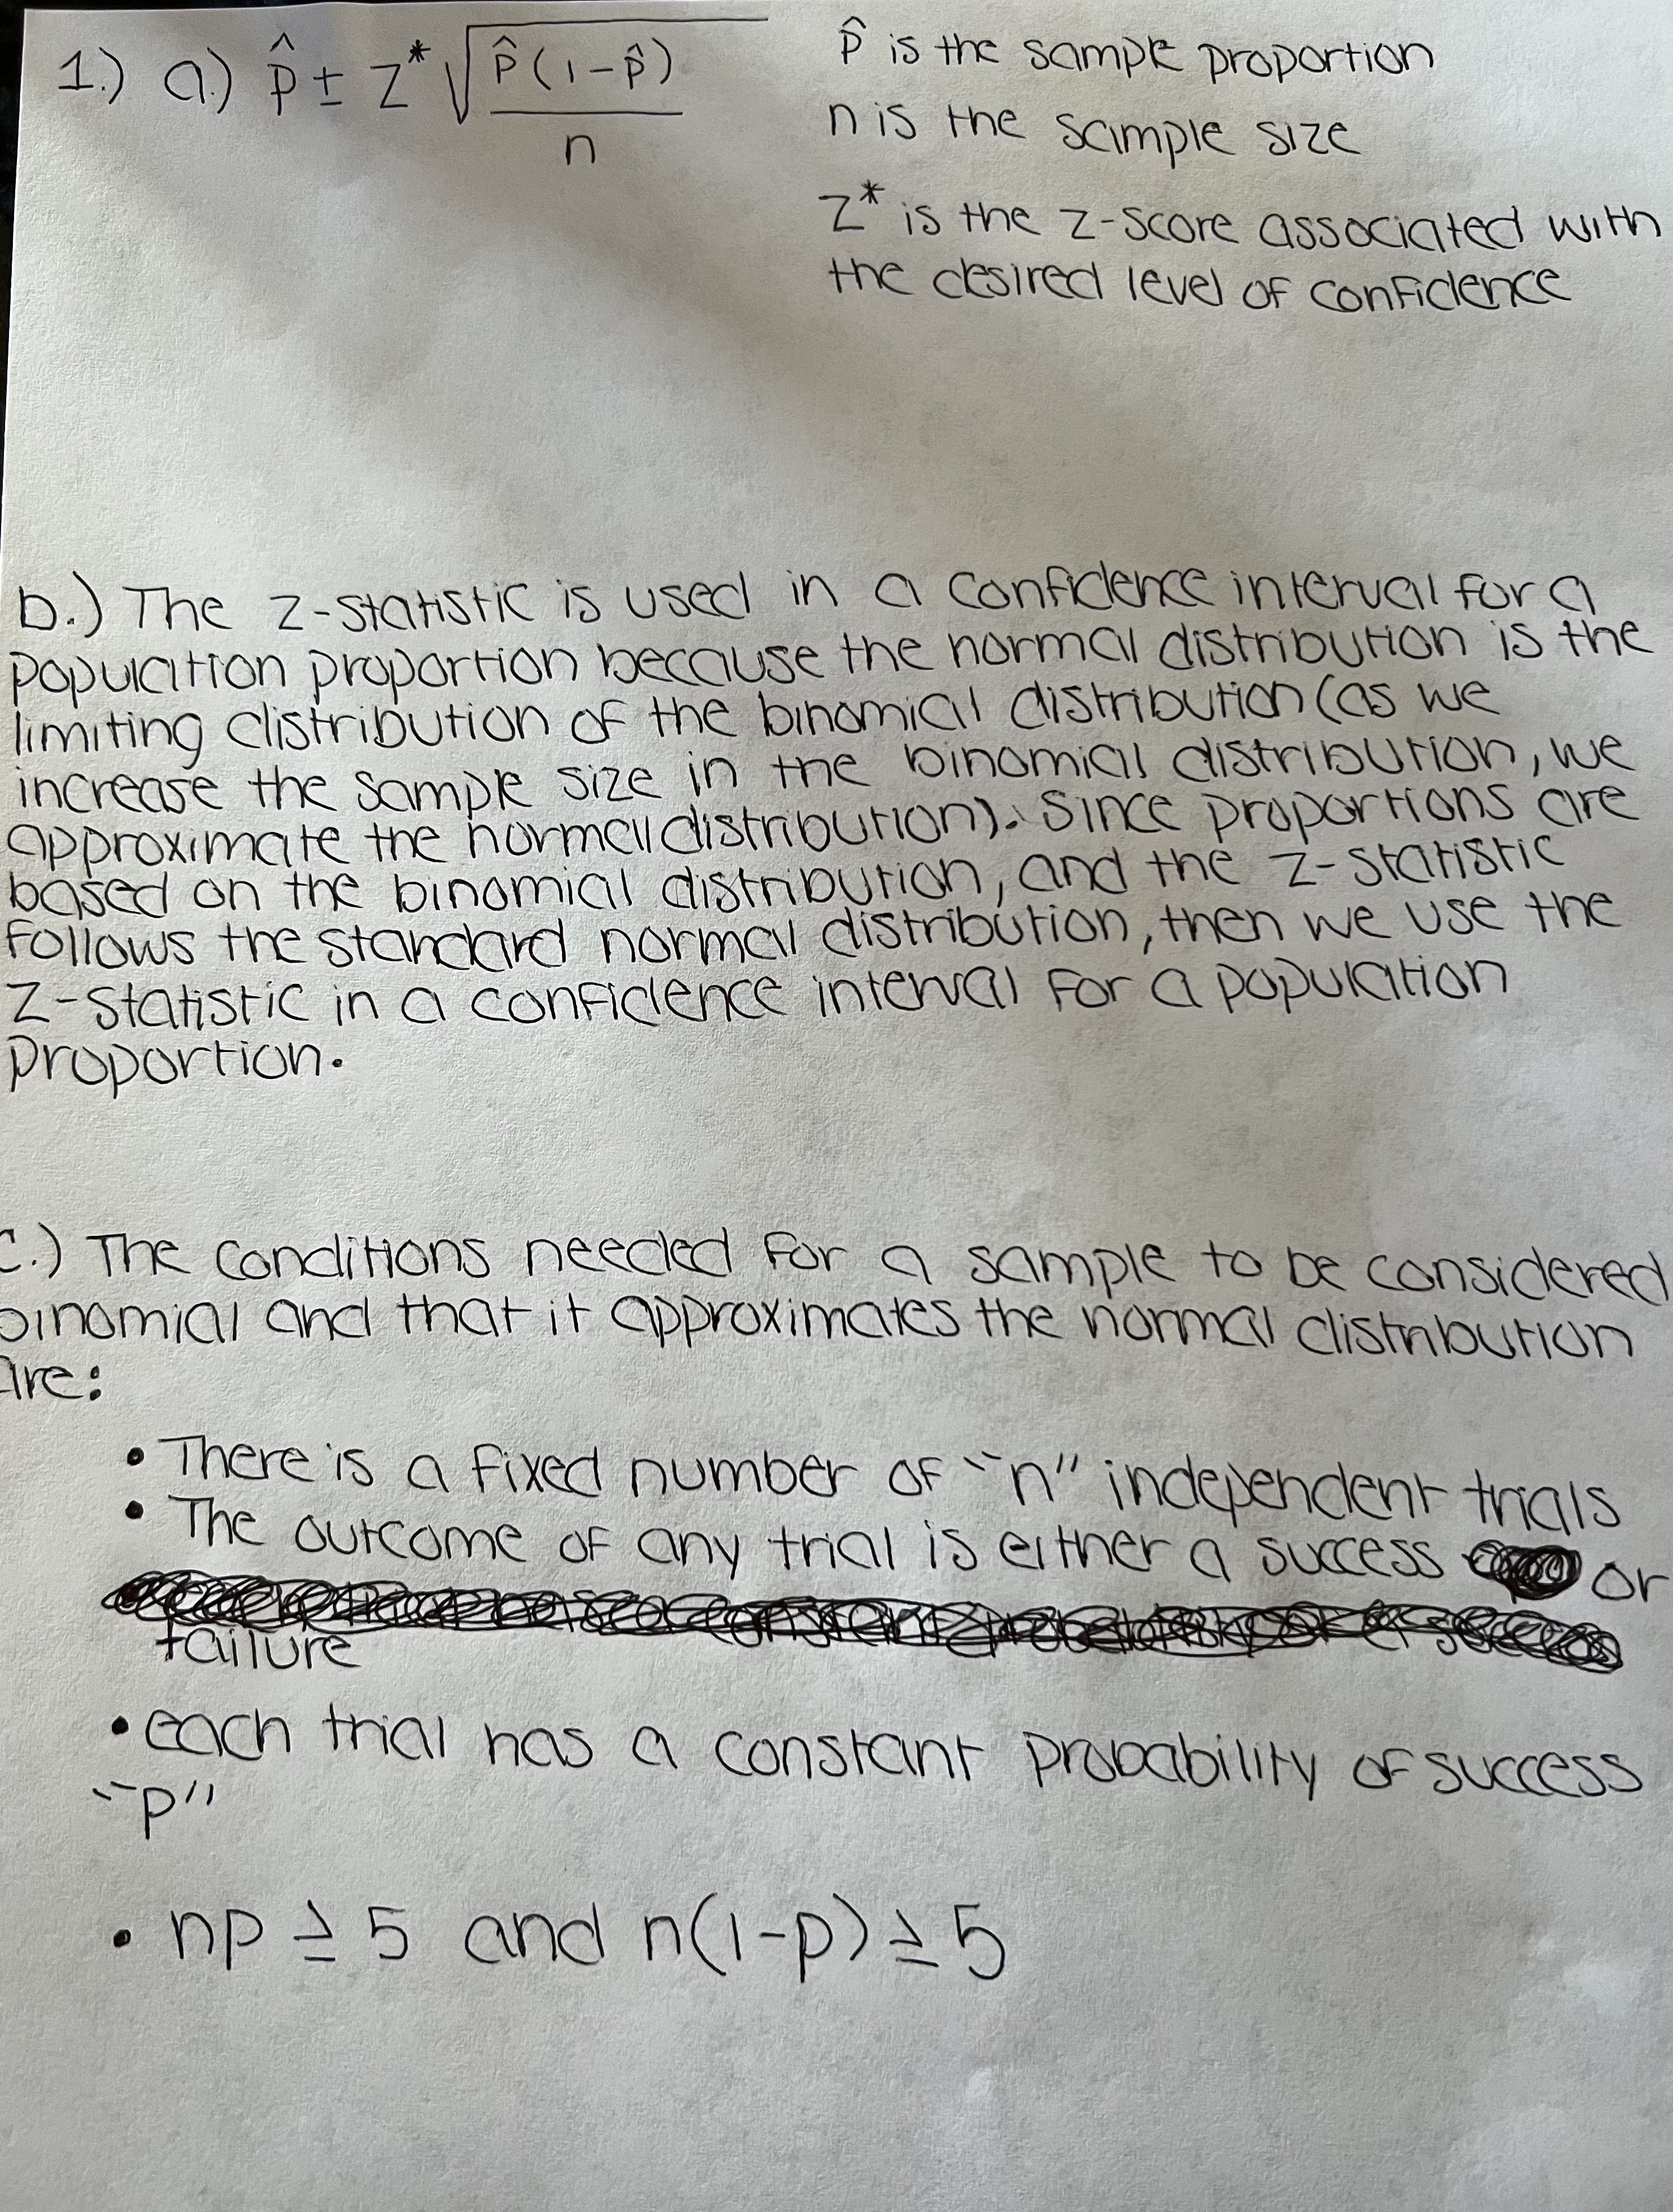 1.) a.) p̂ ± z* √ p̂(1-p̂)
n
p̂ is the sample proportion
n is the sample size
z* is the z-score associated with
the desired level of confidence
b.) The z-statistic is used in a confidence interval for a
population proportion because the normal distribution is the
limiting distribution of the binomial distribution (as we
increase the sample size in the binomial distribution, we
approximate the normal distribution). Since proportions are
based on the binomial distribution, and the z-statistic
follows the standard normal distribution, then we use the
z-statistic in a confidence interval for a population
proportion.
c.) The conditions needed for a sample to be considered
binomial and that it approximates the normal distribution
are:
• There is a fixed number of "n" independent trials
• The outcome of any trial is either a success or
failure
• each trial has a constant probability of success
"p"
• np ≥ 5 and n(1-p) ≥ 5